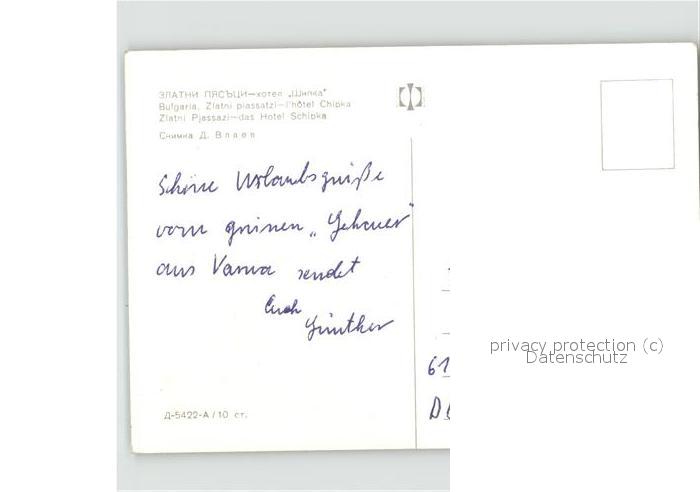 ЗЛАТНИ ПЯСЪЦИ—хотел „Шипка"
Bulgaria, Zlatni piassatzi—l'hôtel Chipka
Zlatni Pjassazi—das Hotel Schipka
Снимка Д. Влаев
Schöne Urlaubsgrüße
vom grünen „Gehauer"
aus Varna sendet
Euch
Günther
61
D
Д-5422-А/10 ст.
privacy protection (c)
Datenschutz